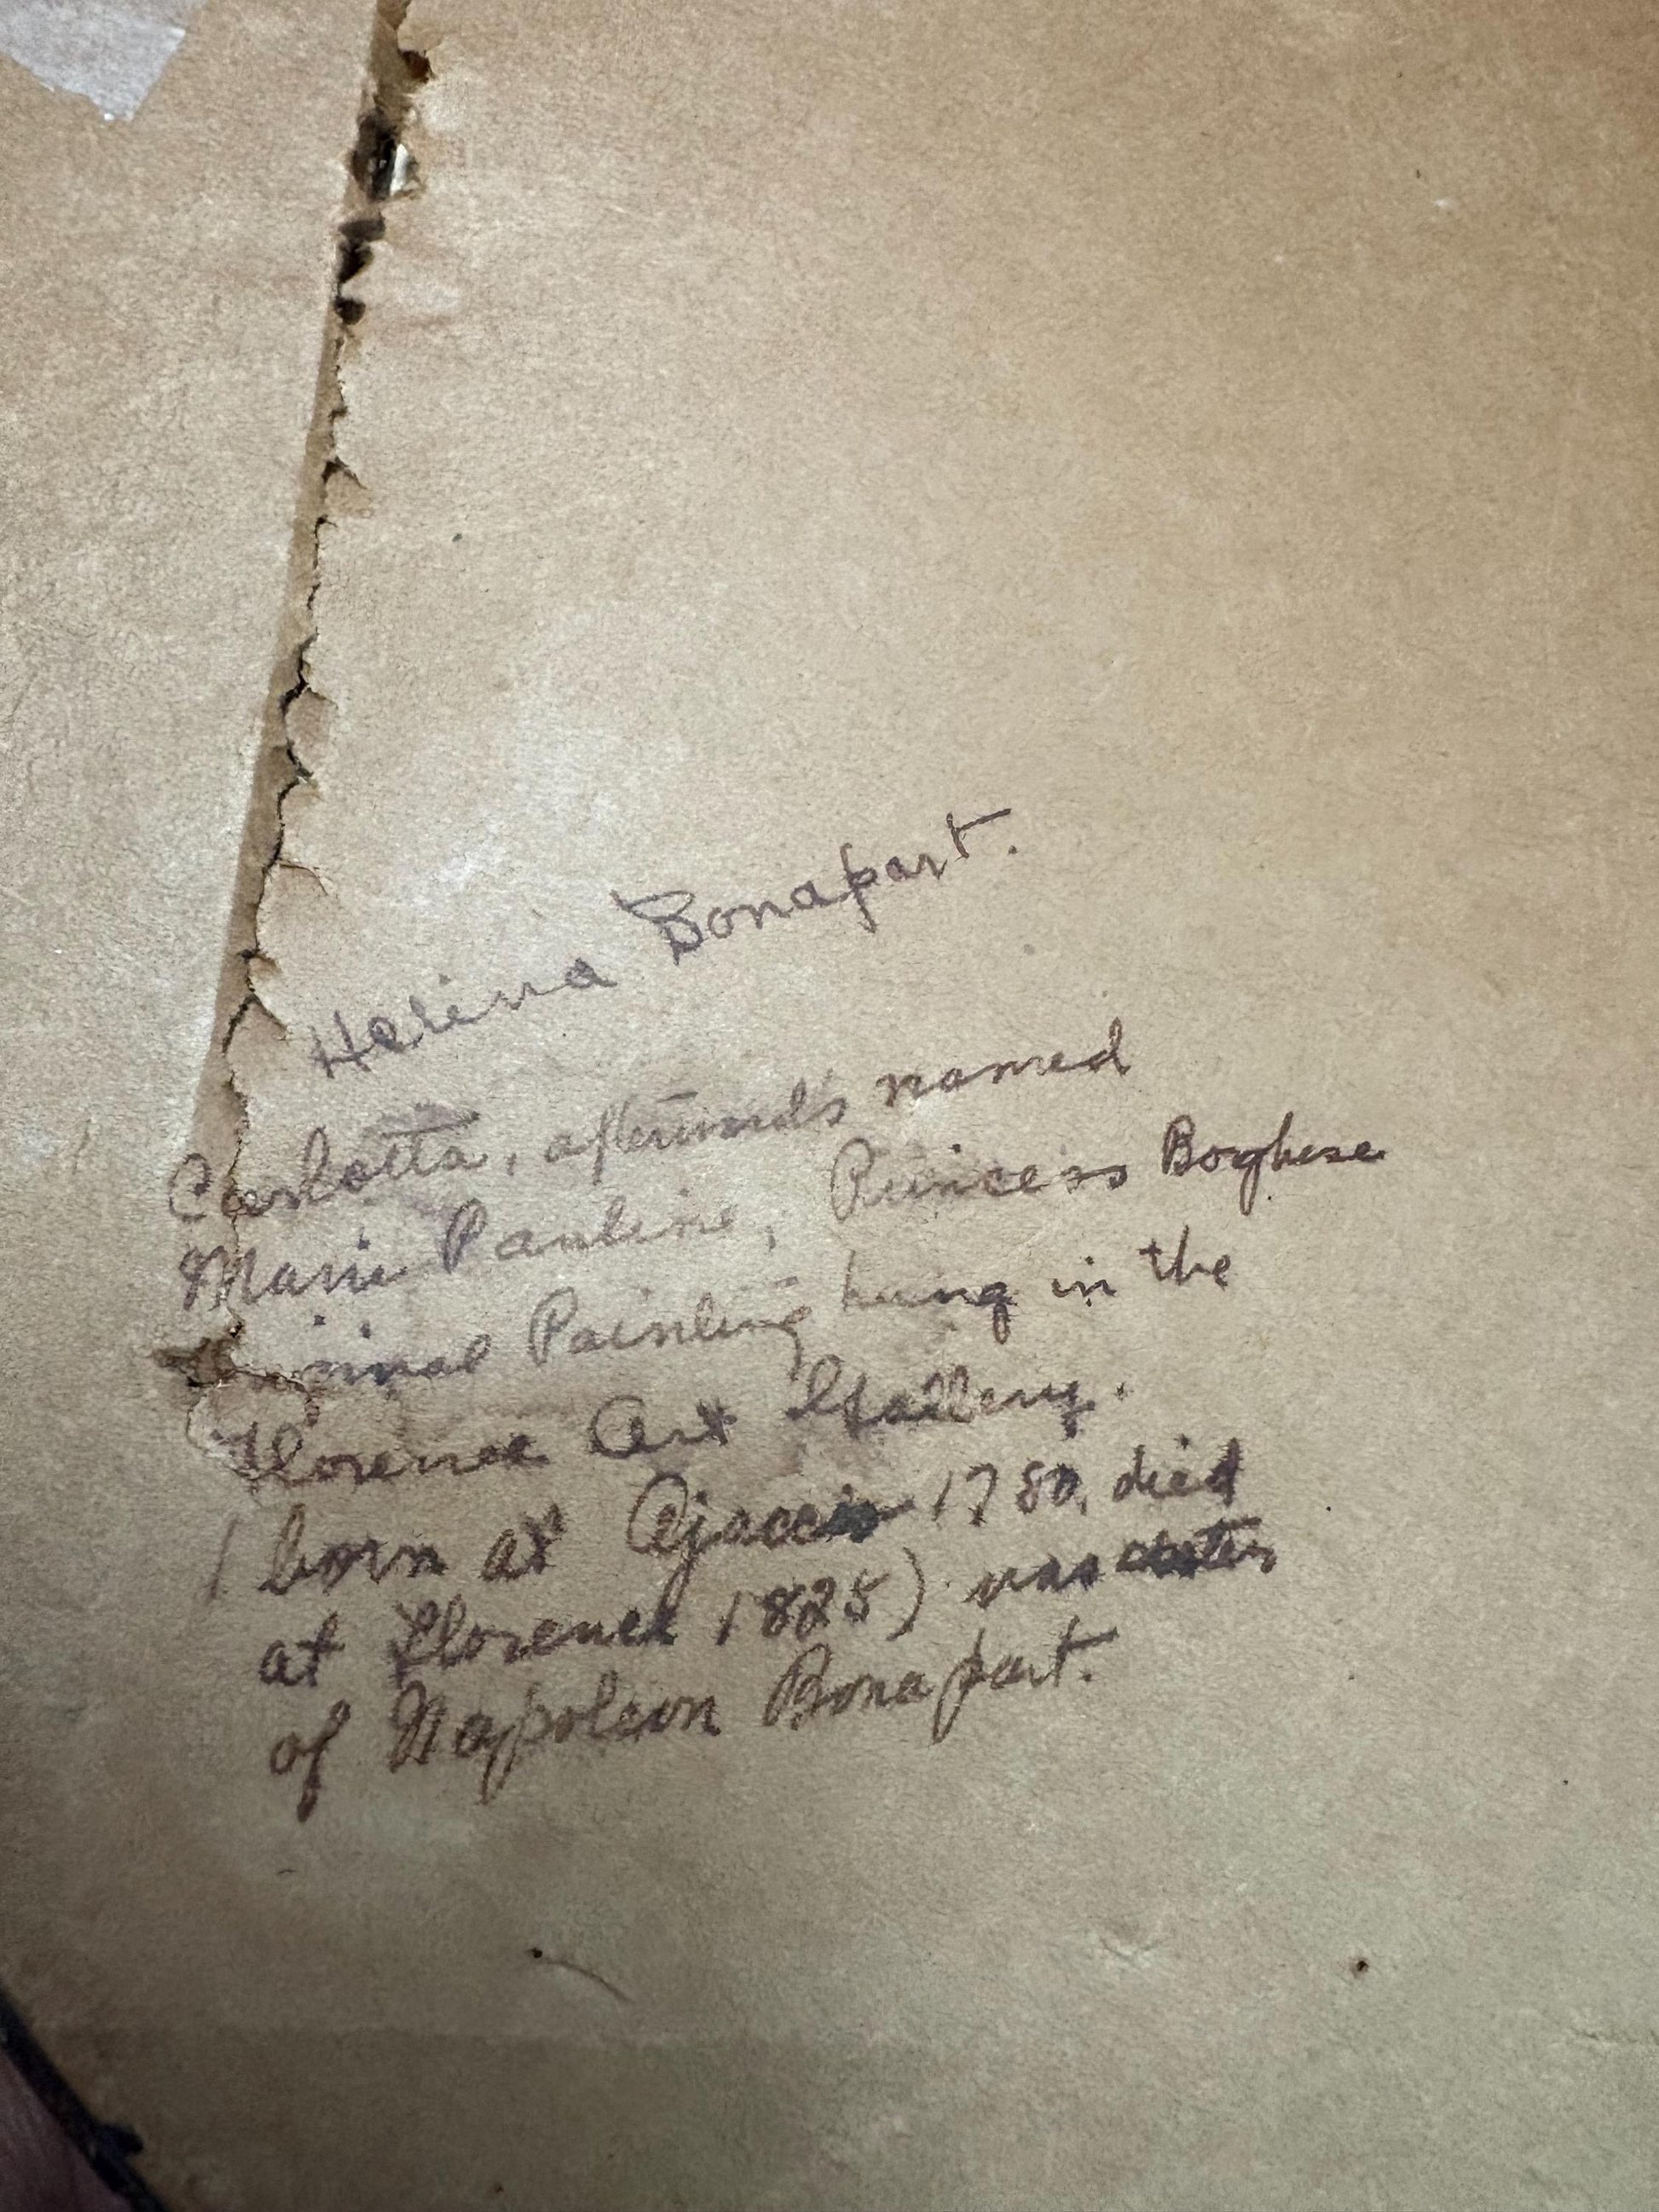 Helina Bonapart.
Carlotta, afterwards named
Marie Pauline, Princess Borghese
Painting hung in the
Florence Art Gallery.
( born at Ajaccio 1780, died
at Florence 1825) was sister
of Napoleon Bonapart.